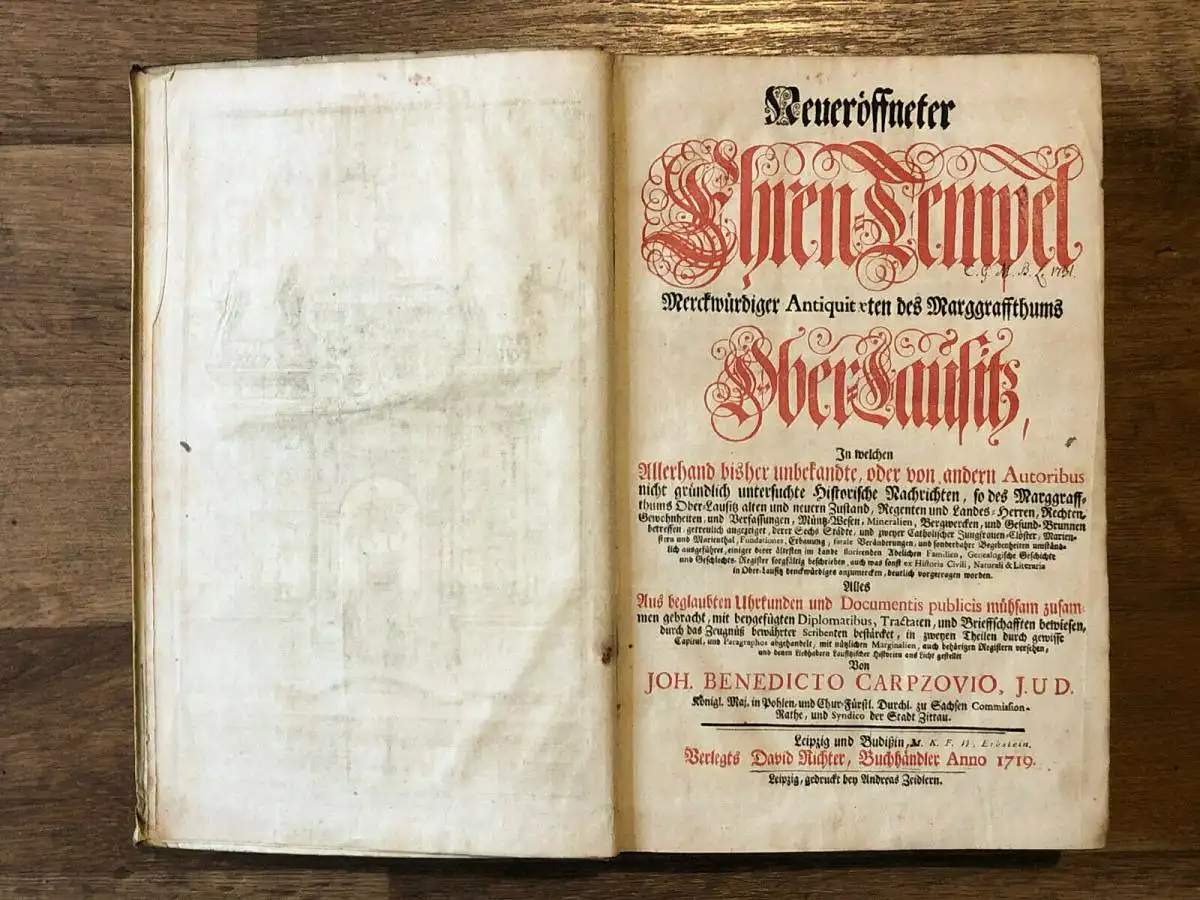 Neueröffneter
Ehren-Tempel
C. G. M. B. L. 1781.
Merckwürdiger Antiquitæten des Marggraffthums
Ober-Lausitz,
In welchen
Allerhand bisher unbekandte, oder von andern Autoribus
nicht gründlich untersuchte Historische Nachrichten, so des Marggraff-
thums Ober-Lausitz alten und neuern Zustand, Regenten und Landes-Herren, Rechten,
Gewohnheiten, und Verfassungen, Müntz-Wesen, Mineralien, Bergwercken, und Gesund-Brunnen
betreffen, getreulich angezeiget, derer Sechs Städte, und zweyer Catholischer Jungfrauen-Clöster, Marien-
stern und Marienthal, Fundationes, Erbauung, fatale Veränderungen, und sonderbahre Begebenheiten umständ-
lich ausgeführet, einiger derer ältesten im Lande florirenden Adelichen Familien, Genealogische Geschichte
und Geschlechts-Register sorgfältig beschrieben, auch was sonst ex Historia Civili, Naturali & Literaria
in Ober-Lausitz denckwürdiges anzumercken, deutlich vorgetragen worden.
Alles
Aus beglaubten Uhrkunden und Documentis publicis mühsam zusam-
men gebracht, mit beygefügten Diplomatibus, Tractaten, und Brieffschafften bewiesen,
durch das Zeugnüß bewährter Scribenten bestärcket, in zweyen Theilen durch gewisse
Capitul, und Paragraphos abgehandelt, mit nützlichen Marginalien, auch behörigen Registern versehen,
und denen Liebhabern Lausitzischer Historien ans Licht gestellet
Von
JOH. BENEDICTO CARPZOVIO, J. U D.
Königl. Maj. in Pohlen, und Chur-Fürstl. Durchl. zu Sachsen Commission-
Rathe, und Syndico der Stadt Zittau.
Leipzig und Budißin, M. K. F. W. Erbstein.
Verlegts David Richter, Buchhändler Anno 1719.
Leipzig, gedruckt bey Andreas Zeidlern.